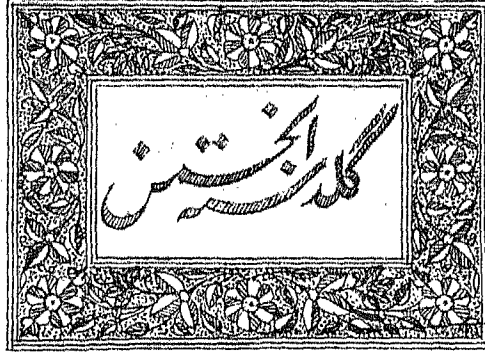 گلدسته انجمن